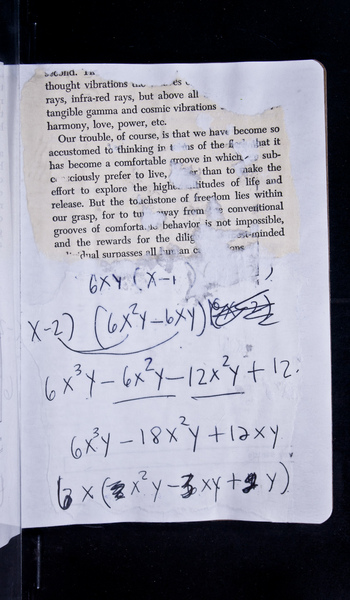 second.
thought vibrations
rays, infra-red rays, but above all
tangible gamma and cosmic vibrations
harmony, love, power, etc.
Our trouble, of course, is that we have become so
accustomed to thinking in of the hat it
has become a comfortable groove in which sub-
ciously prefer to live, er than to make the
effort to explore the high itudes of life and
release. But the touchstone of freedom lies within
our grasp, for to tu away from conventional
grooves of comforta behavior is not impossible,
and the rewards for the dilig minded
dual surpasses all
6xy (x-1
x-2) (6x²y-6xy)
6x³y - 6x²y - 12x²y + 12
6x³y - 18x²y + 12xy
6x ( x²y - 3xy + 2y)